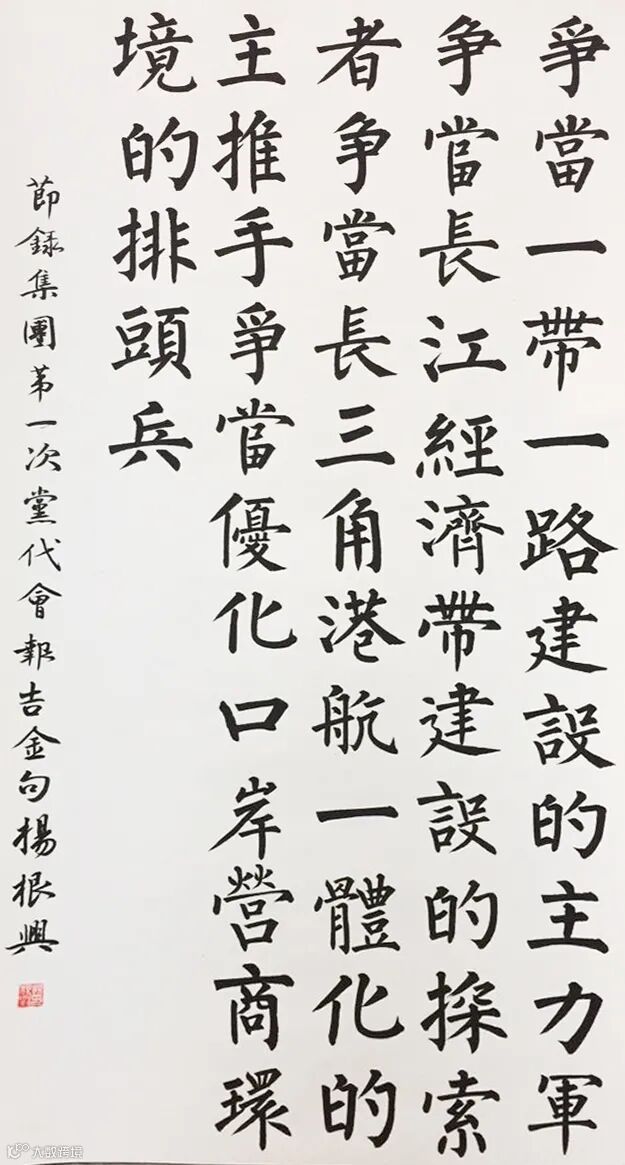 爭當一帶一路建設的主力軍
争當長江經濟帶建設的探索
者争當長三角港航一體化的
主推手爭當優化口岸營商環
境的排頭兵
節録集團第一次黨代會報告金句楊根興
大数跨境